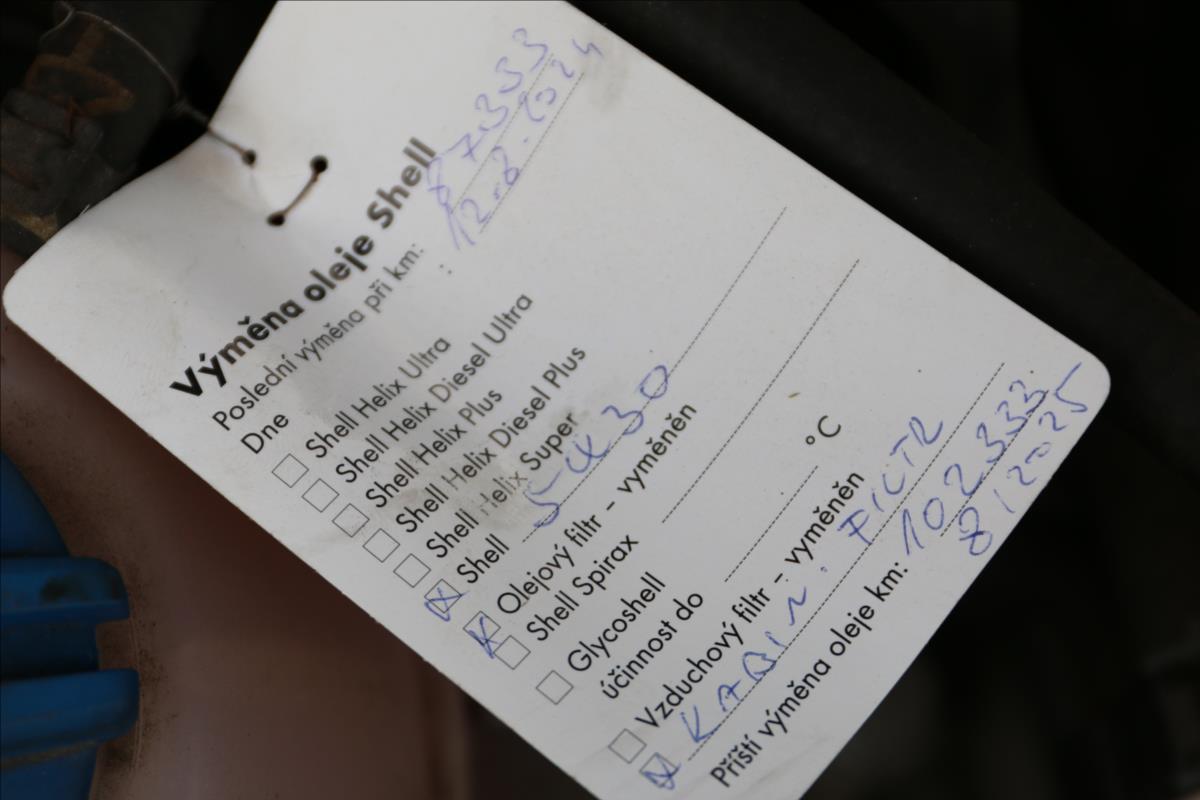 Výměna oleje Shell
Poslední výměna při km: 87.333
Dne : 12.8.2024
Shell Helix Ultra
Shell Helix Diesel Ultra
Shell Helix Plus
Shell Helix Diesel Plus
Shell Helix Super
Shell 5W30
Olejový filtr – vyměněn
Shell Spirax
Glycoshell
účinnost do °C
Vzduchový filtr – vyměněn
KABIN. FILTR
Příští výměna oleje km: 102333
8/2025